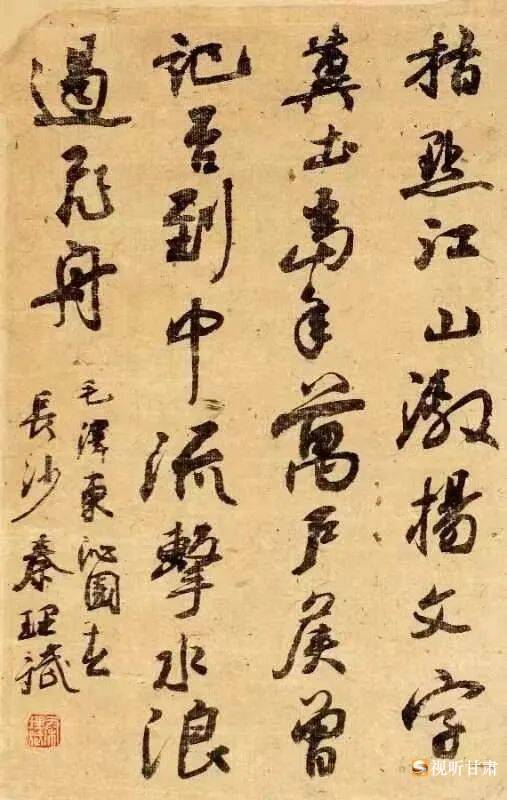 指點江山激揚文字
糞土當年萬戶侯曾
記否到中流擊水浪
遏飛舟
毛澤東沁園春
長沙 秦理斌
视听甘肃